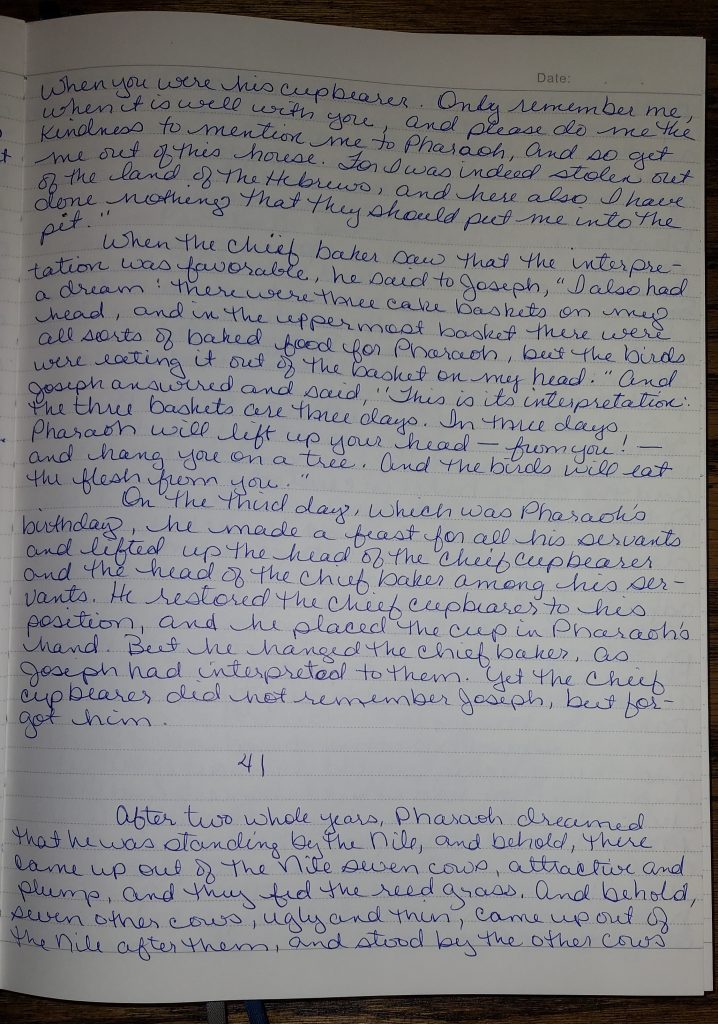 Date:
when you were his cupbearer. Only remember me,
when it is well with you, and please do me the
kindness to mention me to Pharaoh, and so get
me out of this house. For I was indeed stolen out
of the land of the Hebrews, and here also I have
done nothing that they should put me into the
pit."
When the chief baker saw that the interpre-
tation was favorable, he said to Joseph, "I also had
a dream: there were three cake baskets on my
head, and in the uppermost basket there were
all sorts of baked food for Pharaoh, but the birds
were eating it out of the basket on my head." And
Joseph answered and said, "This is its interpretation:
the three baskets are three days. In three days
Pharaoh will lift up your head — from you! —
and hang you on a tree. And the birds will eat
the flesh from you."
On the third day, which was Pharaoh's
birthday, he made a feast for all his servants
and lifted up the head of the chief cupbearer
and the head of the chief baker among his ser-
vants. He restored the chief cupbearer to his
position, and he placed the cup in Pharaoh's
hand. But he hanged the chief baker, as
Joseph had interpreted to them. Yet the chief
cupbearer did not remember Joseph, but for-
got him.
41
After two whole years, Pharaoh dreamed
that he was standing by the Nile, and behold, there
came up out of the Nile seven cows, attractive and
plump, and they fed the reed grass. And behold,
seven other cows, ugly and thin, came up out of
the Nile after them, and stood by the other cows